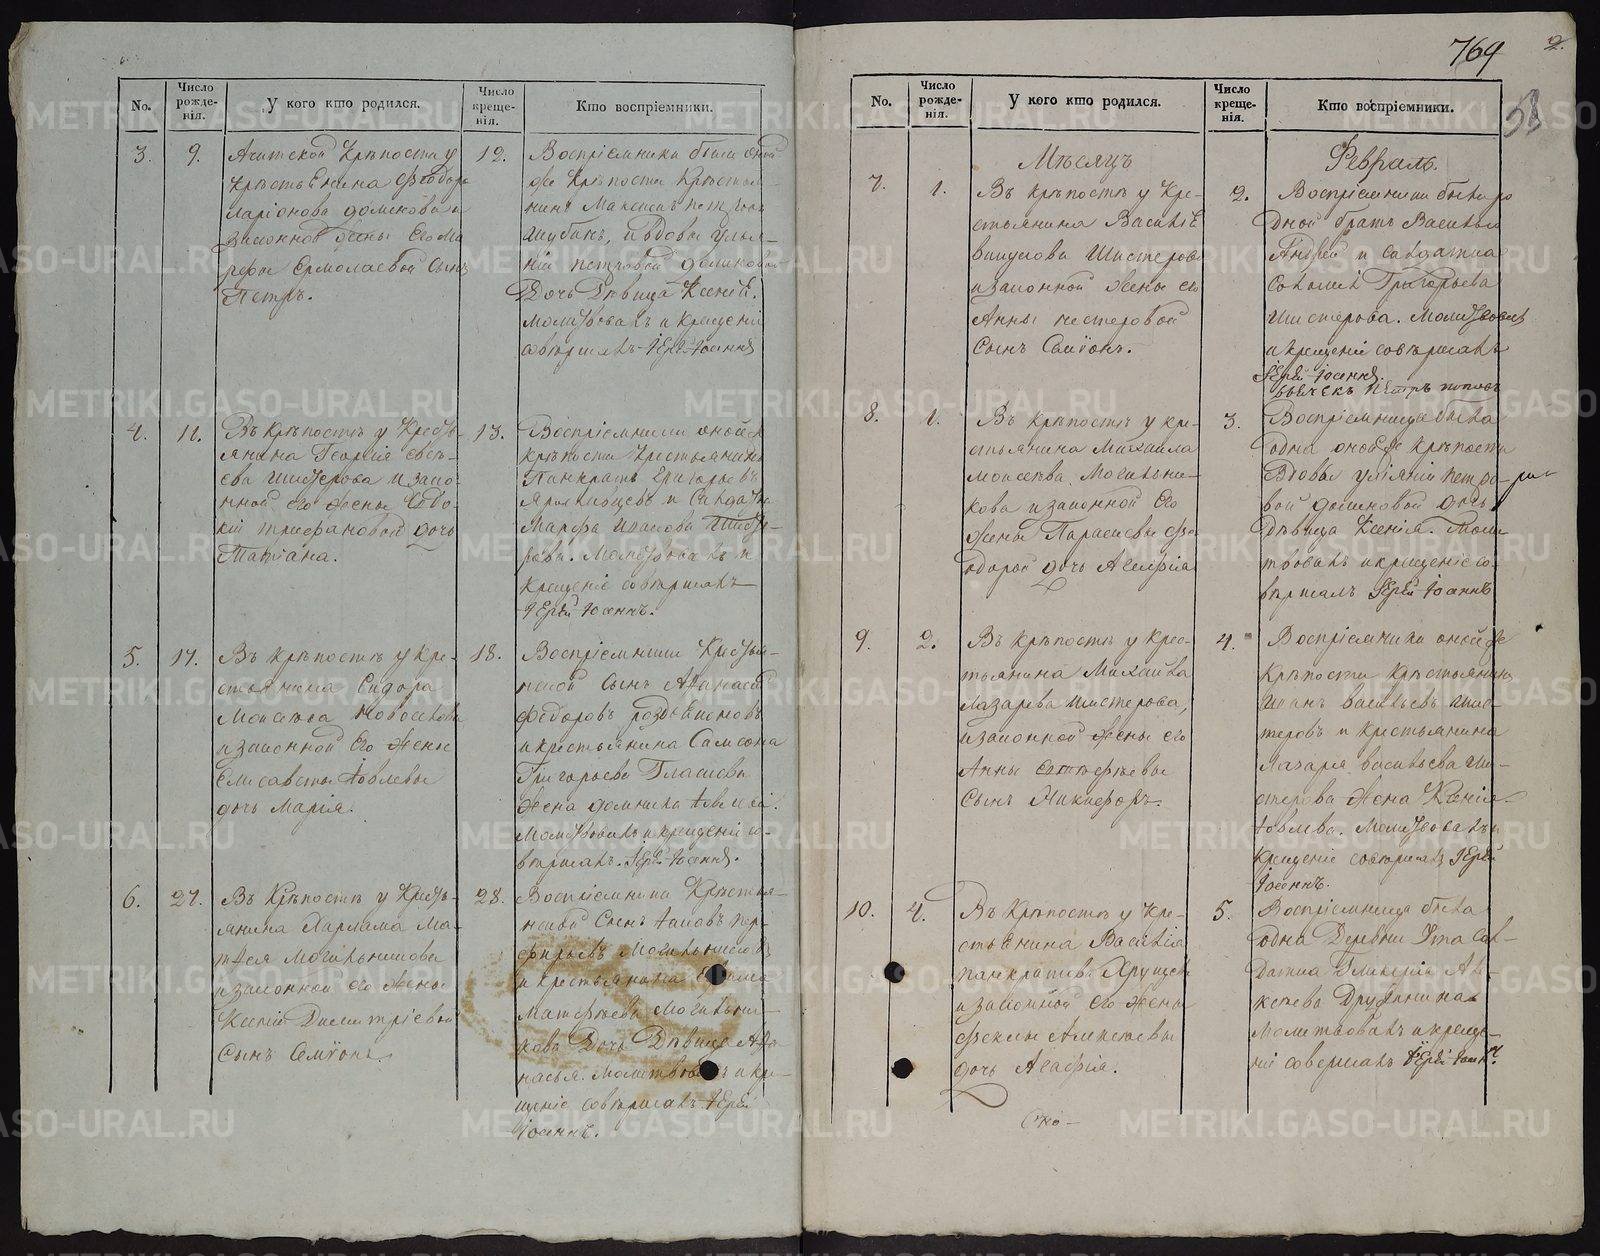 No.
Число рожде-нія.
У кого кто родился.
Число креще-нія.
Кто воспріемники.
3.
9.
Ачитской Крѣпости у
крестьянина Феодора
Ларіонова
законной жены Его Ма
рфы Ермолаевой Сынъ
Петръ.
12.
Воспріемники были оной
же Крѣпости Крестья-
нинъ Максимъ Петровъ
Шубинъ, и вдовы Улья-
ніи Петровой
Дочь Дѣвица Ксенія.
Молитвовалъ и Крещеніе
совершалъ Іерей Іоаннъ
4.
11.
Въ Крѣпостѣ у Кресть-
янина Георгія Евсѣ-
ева Шистерова и зако-
нной Его жены Евдо-
кіи Трифановой дочь
Татіана.
13.
Воспріемники оной ж
крѣпости Крестьянинъ
Панкратъ Григорьевъ
и Салдатка
Марфа Иванова Шисте-
рова. Молитвовалъ и
крещеніе совершалъ
Іерей Іоаннъ.
5.
17.
Въ Крѣпостѣ у Кре-
стьянина Сидора
Моисеева Новоселова
и законной Его Жены
Елисаветы Іовлевы
дочь Марія.
18.
Воспріемники Крестья-
нской Сынъ Афанасій
Федоровъ
и крестьянина Самсона
Григорьева Власиева
Жена домника Іовлева.
Молитвовалъ и крещеніе со-
вершалъ. Іерей Іоаннъ.
6.
27.
Въ Крѣпостѣ у Кресть-
янина Харлама Ма-
тѳея Могильникова
и законной его жены
Ксеніи Дмитріевой
Сынъ Семіонъ.
28.
Воспріемники Крестья-
нской Сынъ Іаковъ Пор-
фирьевъ Могильников
и крестьянина Ефима
Матфеева Могильни-
кова Дочь Дѣвица Афа
насья. Молитвовалъ и кре-
щеніе совершалъ Іерей
Іоаннъ.
769
2.
53
No.
Число рожде-нія.
У кого кто родился.
Число креще-нія.
Кто воспріемники.
Мѣсяцъ
Февраль.
7.
1.
Въ крѣпостѣ у Кре-
стьянина Василія
Викулова Шистерова
и законной жены его
Анны Нестеровой
Сынъ Симіонъ.
2.
Воспріемники были ро
дной братъ Василья
Андрей и салдатка
Соломія Григорьева
Шистерова. Молитвовалъ
и крещеніе совершалъ
Іерей Іоаннъ.
дьячекъ Петръ Поповъ
8.
1.
Въ крѣпостѣ у кре-
стьянина Михаила
Моисеева Могильни-
кова и законной Его
жены Парасковьи Фе
одорой дочь Агафія
3.
Воспріемница была
одна оной же крѣпости
Вдовы Ульяній Петро-
вой дочь
дѣвица Ксенія. Моли
твовалъ и крещеніе со-
вершалъ Іерей Іоаннъ
9.
2.
Въ Крѣпостѣ у Крес-
тьянина Михаила
Лазарева Шистерова,
и законной жены его
Анны
Сынъ Никифоръ.
4.
Воспріемники оной же
Крѣпости Крестьянинъ
Иванъ Васильевъ Шис-
теровъ и Крестьянина
Лазаря Васильева Ши-
стерова жена Ксенія
Іовлева. Молитвовалъ и
Крещеніе совершалъ Іерей
Іоаннъ.
10.
4.
Въ Крѣпостѣ у Кре-
стьянина Василія
Панкратив. Хрущев
и законной его жены
Феклы Алексіевы
дочь Агафія.
5.
Воспріемница была
одна Деревни Ута Сал-
датка Гликерія Ал-
ксеева Дружинина
Молитвовалъ и креще-
ніе совершалъ Іерей Іоаннъ.